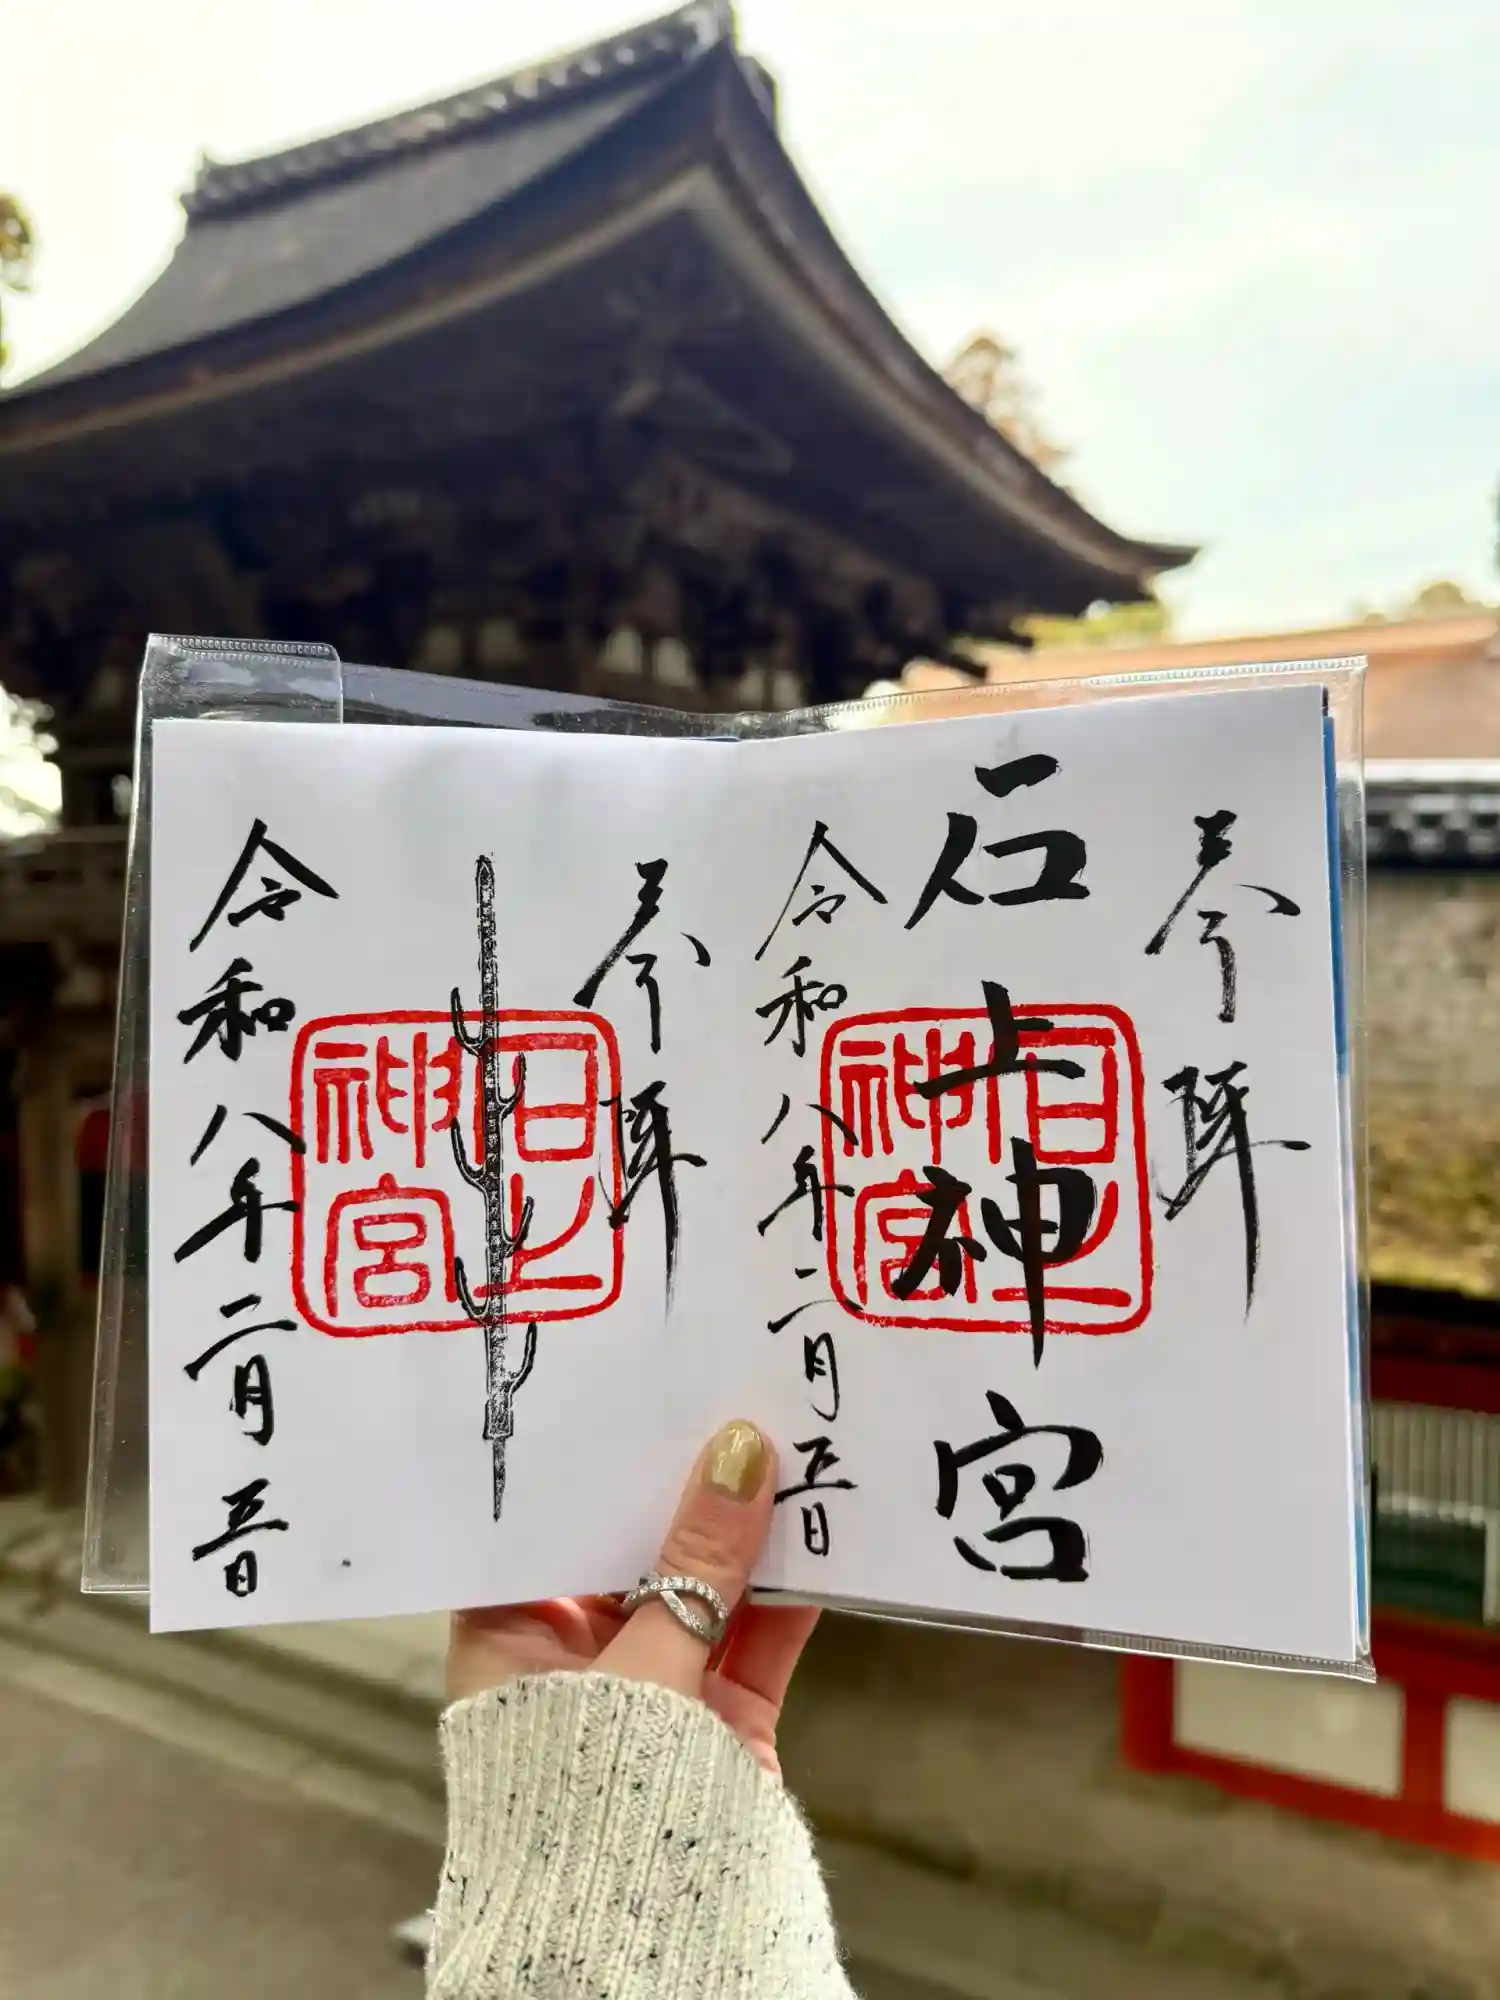 参拝
石上神宮
石上神宮
令和八年二月五日
参拝
石上神宮
令和八年二月五日